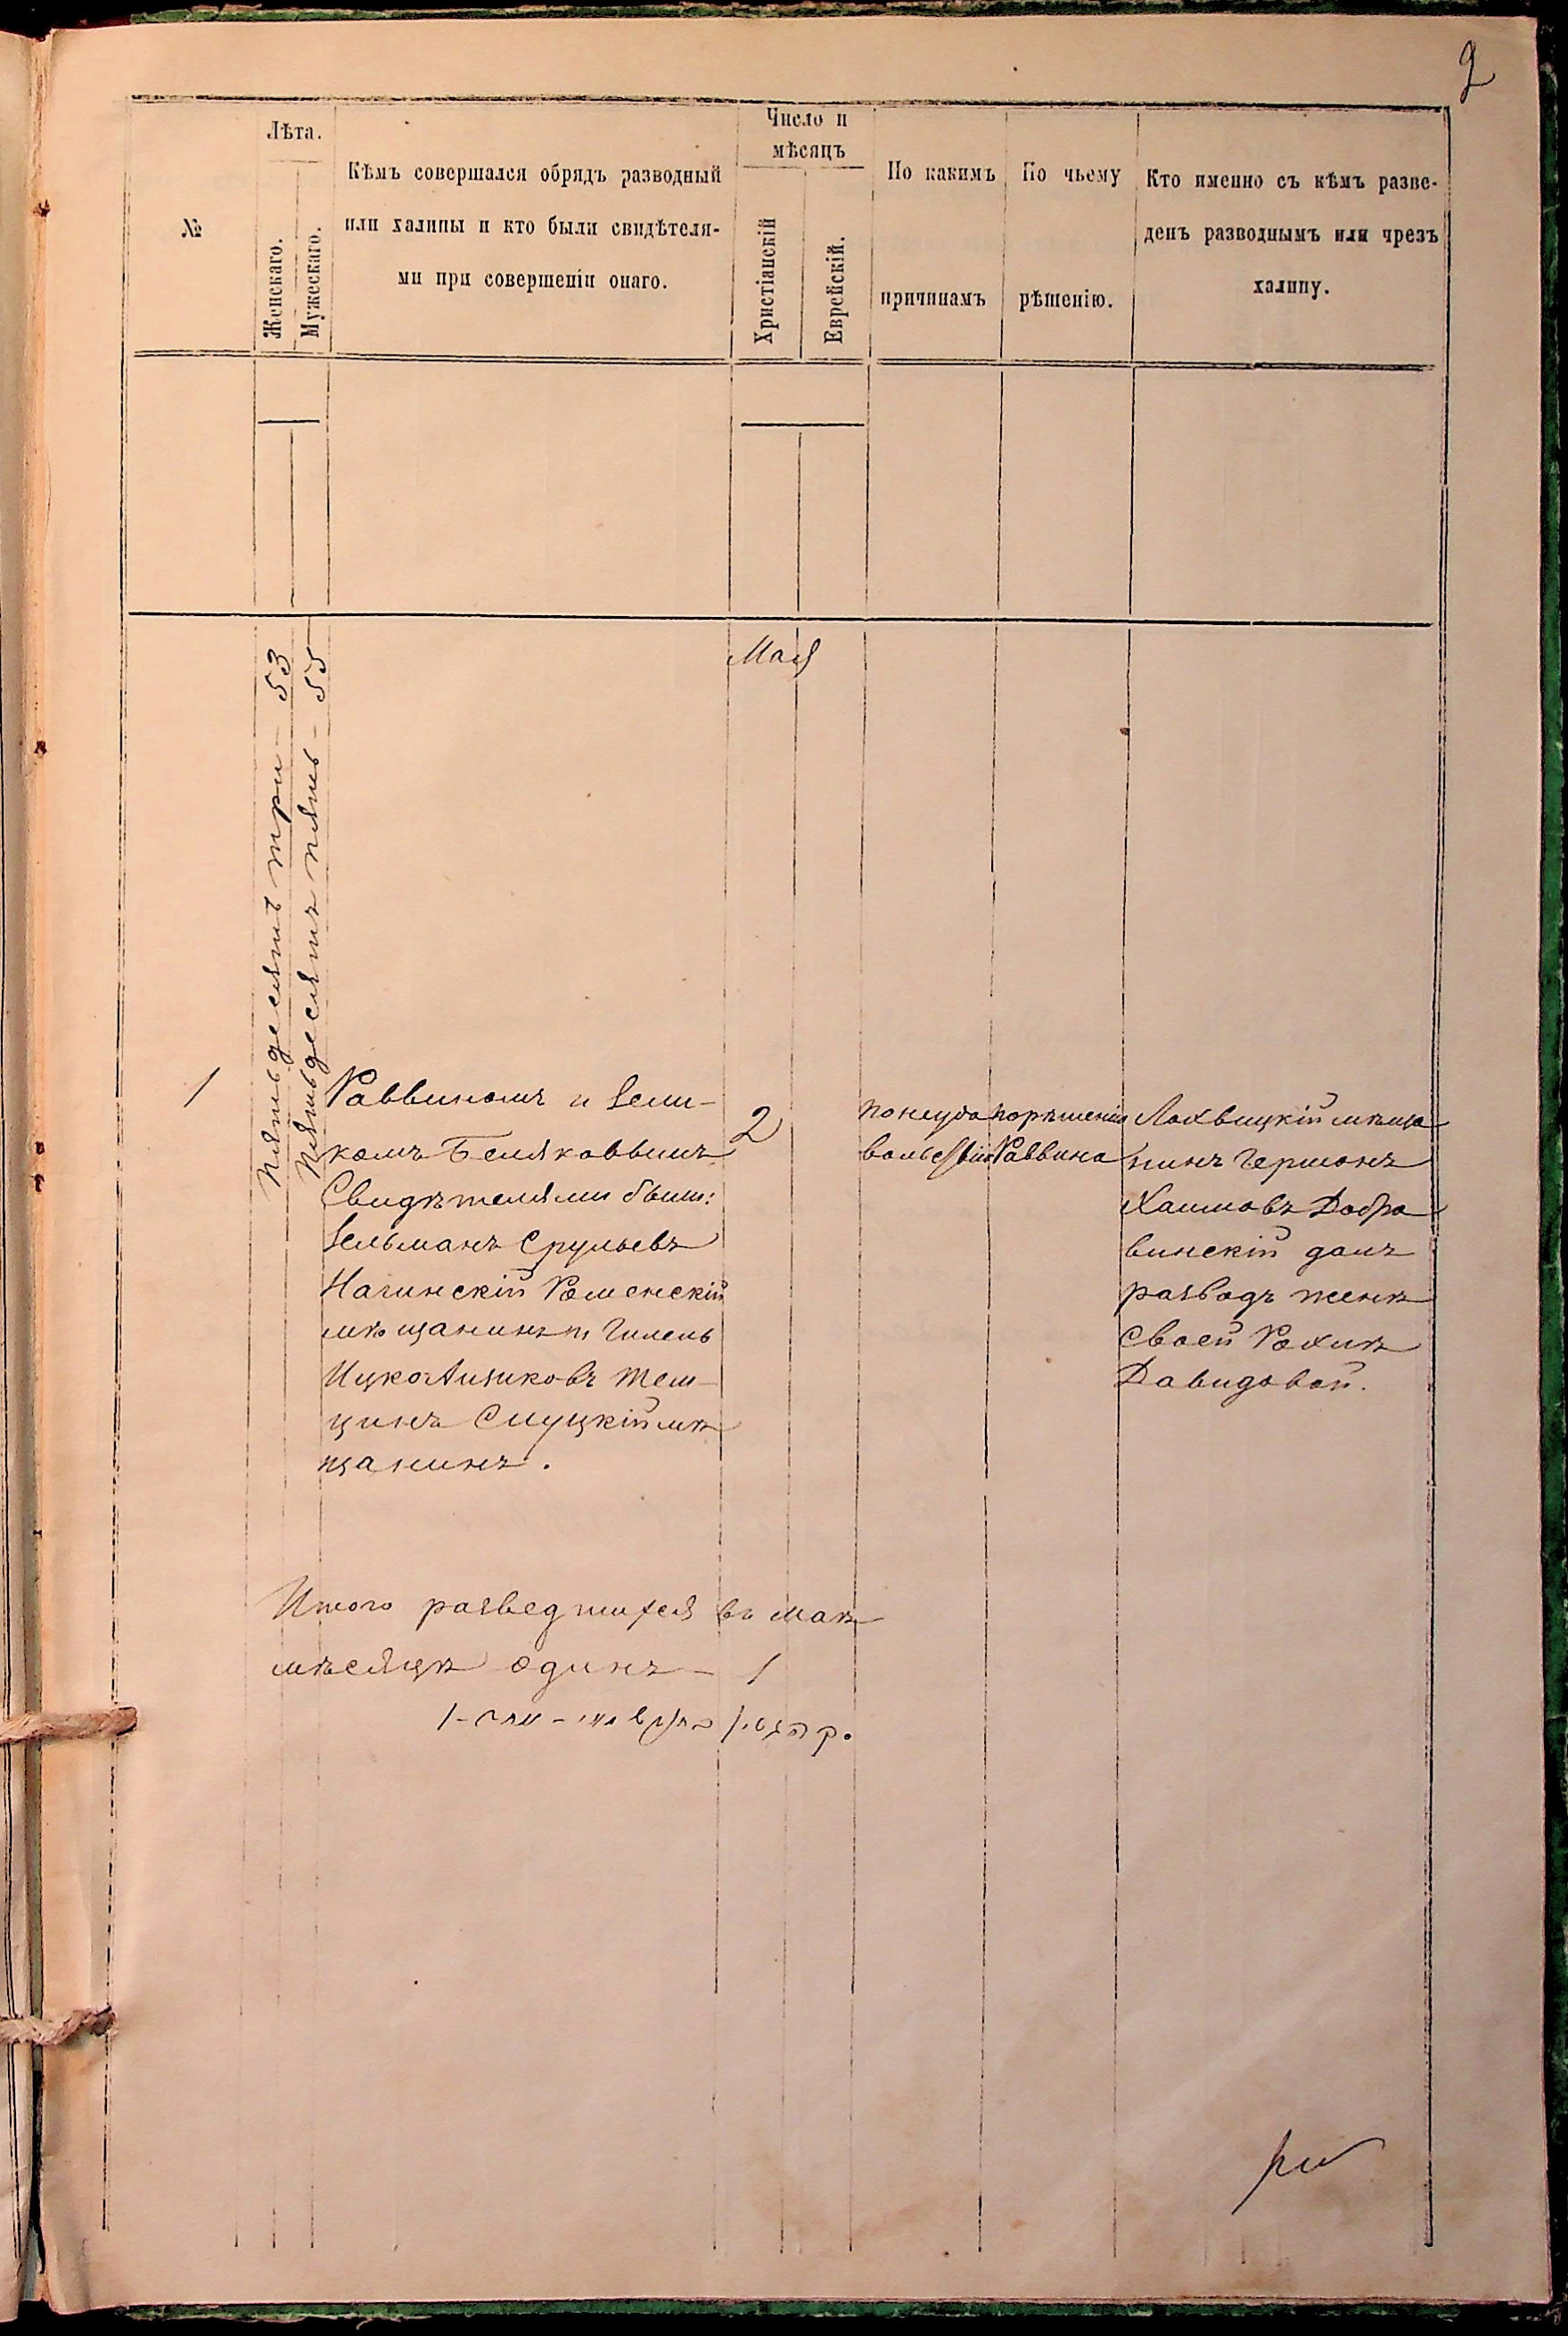 2
№
Лѣта.
Женскаго.
Мужескаго.
Кѣмъ совершался обрядъ разводный
или халицы и кто были свидѣтеля-
ми при совершеніи онаго.
Число и
мѣсяцъ
Христіанскій
Еврейскій.
По какимъ
причинамъ
По чьему
рѣшенію.
Кто именно съ кѣмъ разве-
денъ разводнымъ или чрезъ
халицу.
Мая
1
Пятьдесятъ три - 53
Пятьдесятъ пять - 55
Раввиномъ и Зели-
комъ Беляковымъ
Свидѣтелями были:
Зельманъ Срульевъ
Нагинскій Роменскій
мѣщанинъ и Гилель
Ицко Айзиковъ
цинъ Слуцкій мѣ
щанинъ.
2
по неудо
вольствію
по рѣшенію
Раввина
Лохвицкій мѣща
нинъ Гершонъ
Хаимовъ Добро
винскій далъ
разводъ женѣ
своей Рохлѣ
Давидовой.
Итого разведшихся въ маѣ
мѣсяцѣ одинъ - 1